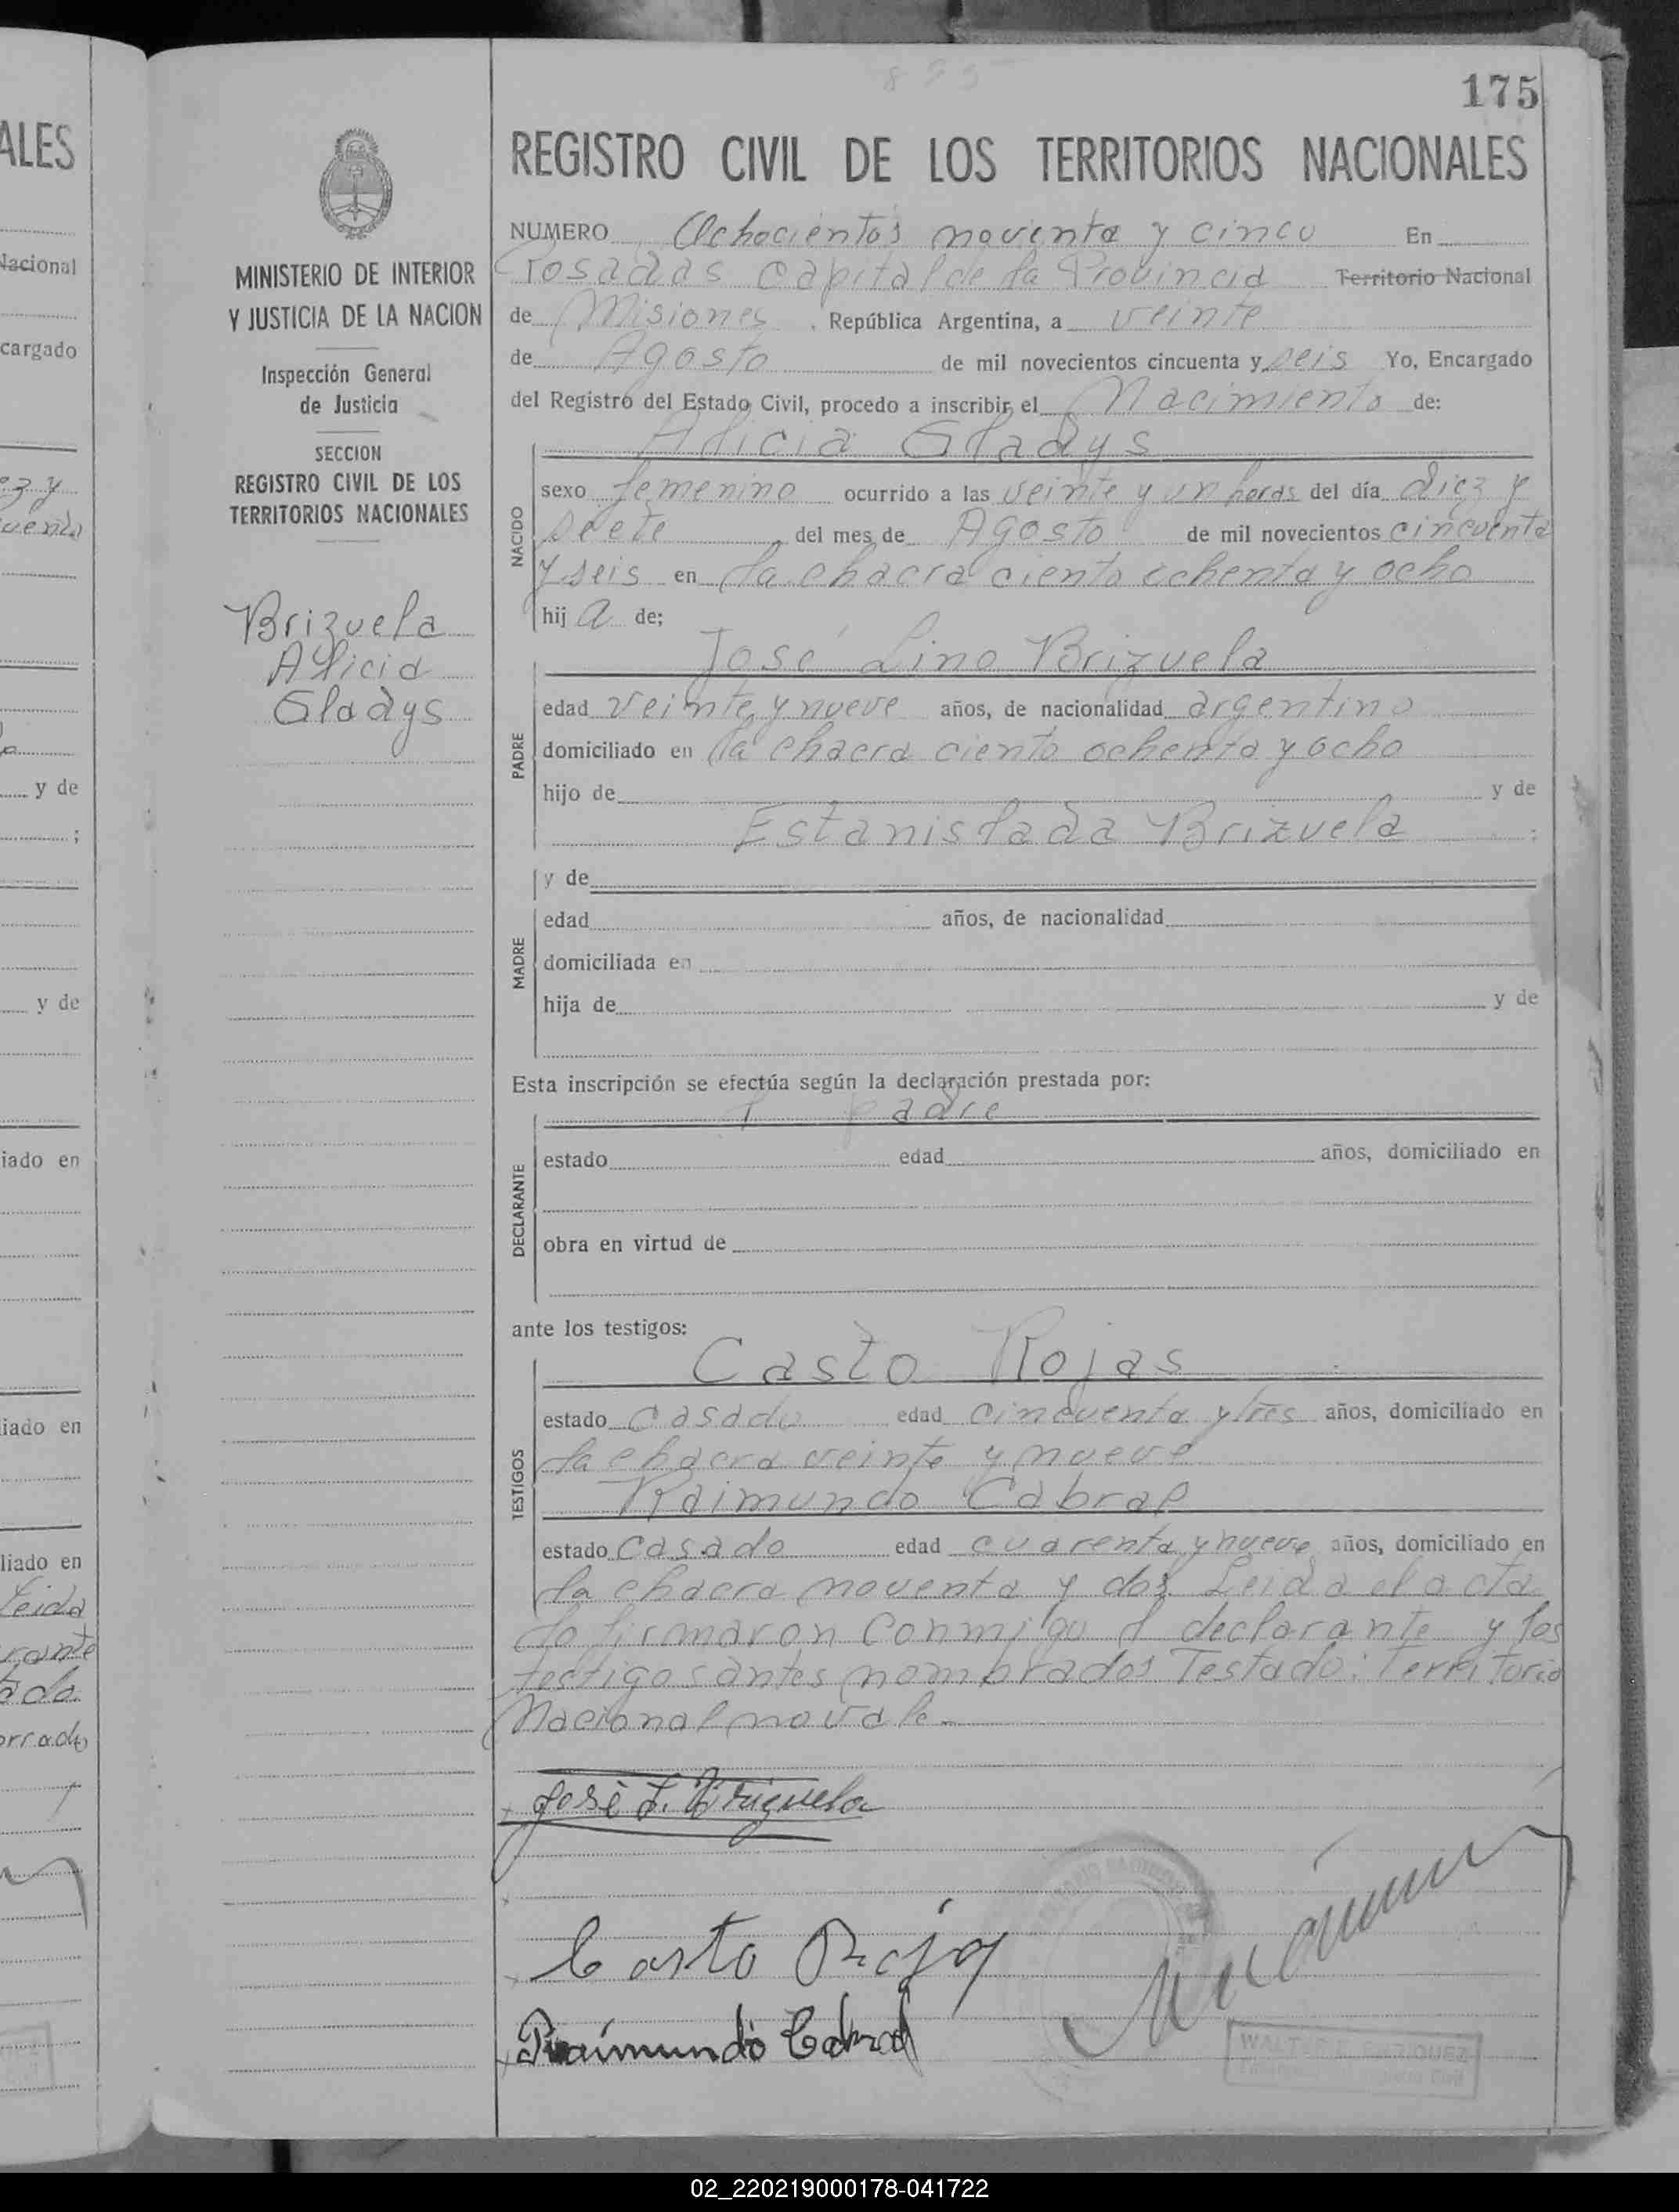 895
175
REGISTRO CIVIL DE LOS TERRITORIOS NACIONALES
NUMERO Ochocientos noventa y cinco En
Posadas Capital de la Provincia Territorio Nacional
de Misiones , República Argentina, a veinte
de Agosto de mil novecientos cincuenta y seis Yo, Encargado
del Registro del Estado Civil, procedo a inscribir el Nacimiento de:
Alicia Gladys
NACIDO
sexo femenino ocurrido a las veinte y un horas del día diez y
seete del mes de Agosto de mil novecientos cincuenta
y seis en la chacra ciento ochenta y ocho
hij a de;
José Lino Brizuela
PADRE
edad veinte y nueve años, de nacionalidad argentino
domiciliado en la chacra ciento ochenta y ocho
hijo de y de
Estanislada Brizuela ;
y de
MADRE
edad años, de nacionalidad
domiciliada en
hija de y de
Esta inscripción se efectúa según la declaración prestada por:
padre
DECLARANTE
estado edad años, domiciliado en
obra en virtud de
ante los testigos:
Casto Rojas
TESTIGOS
estado casado edad cincuenta y tres años, domiciliado en
la chacra veinte y nueve
Raimundo Cabral
estado casado edad cuarenta y nueve años, domiciliado en
la chacra noventa y dos Leida el acta
la firmaron conmigo el declarante y los
testigos antes nombrados Testado: Territorio
Nacional no vale
José L. Brizuela
Casto Rojas
Raimundo Cabral
WALTER ENRIQUEZ
MINISTERIO DE INTERIOR
Y JUSTICIA DE LA NACION
Inspección General
de Justicia
SECCION
REGISTRO CIVIL DE LOS
TERRITORIOS NACIONALES
Brizuela
Alicia
Gladys
ALES
Nacional
cargado
y de
;
y de
iado en
iado en
liado en
Leida
02_220219000178-041722